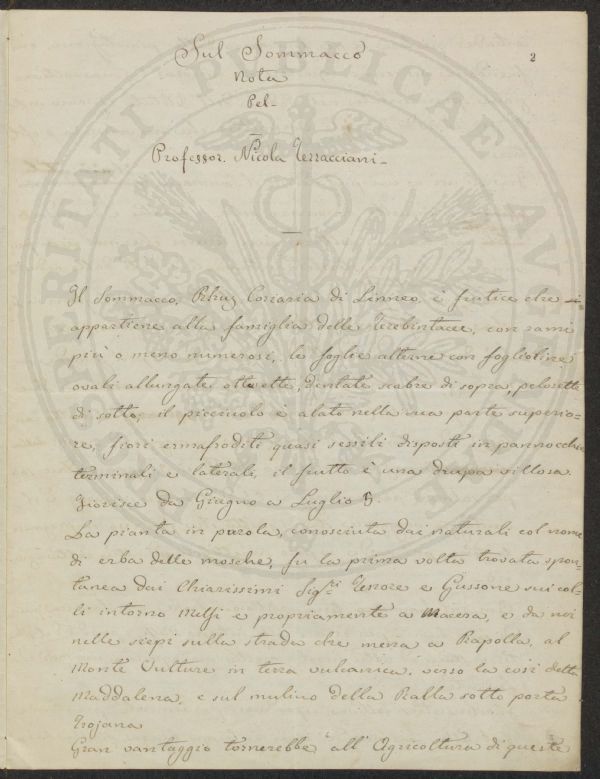 2
Sul Sommacco
Nota
Pel-
Professor. Nicola Terracciani-
Il Sommacco, Rhus Corraria di Linneo, è frutice che si
appartiene alla famiglia delle Terebintacee, con rami
più o meno numerosi, le foglie alterne con foglioline
ovali allungate ottusette, dentate scabre di sopra, pelosette
di sotto, il picciuolo è alato nella sua parte superio=
re, fiori ermafroditi quasi sessili disposti in pannocchie
terminali e laterali, il frutto è una drupa villosa.
Fiorisce da Giugno a Luglio
La pianta in parola, conosciuta dai naturali col nome
di erba delle mosche, fu la prima volta trovata spon-
tanea dai Chiarissimi Sig.ri Tenore e Gussone sui col-
li intorno Melfi e propriamente a Macera, e da noi
nelle siepi sulla strada che mena a Rapolla, al
Monte Vulture in terra vulcanica, verso la così detta
Maddalena, e sul mulino della Ralla sotto porta
Trojana
Gran vantaggio tornerebbe all'Agricoltura di queste